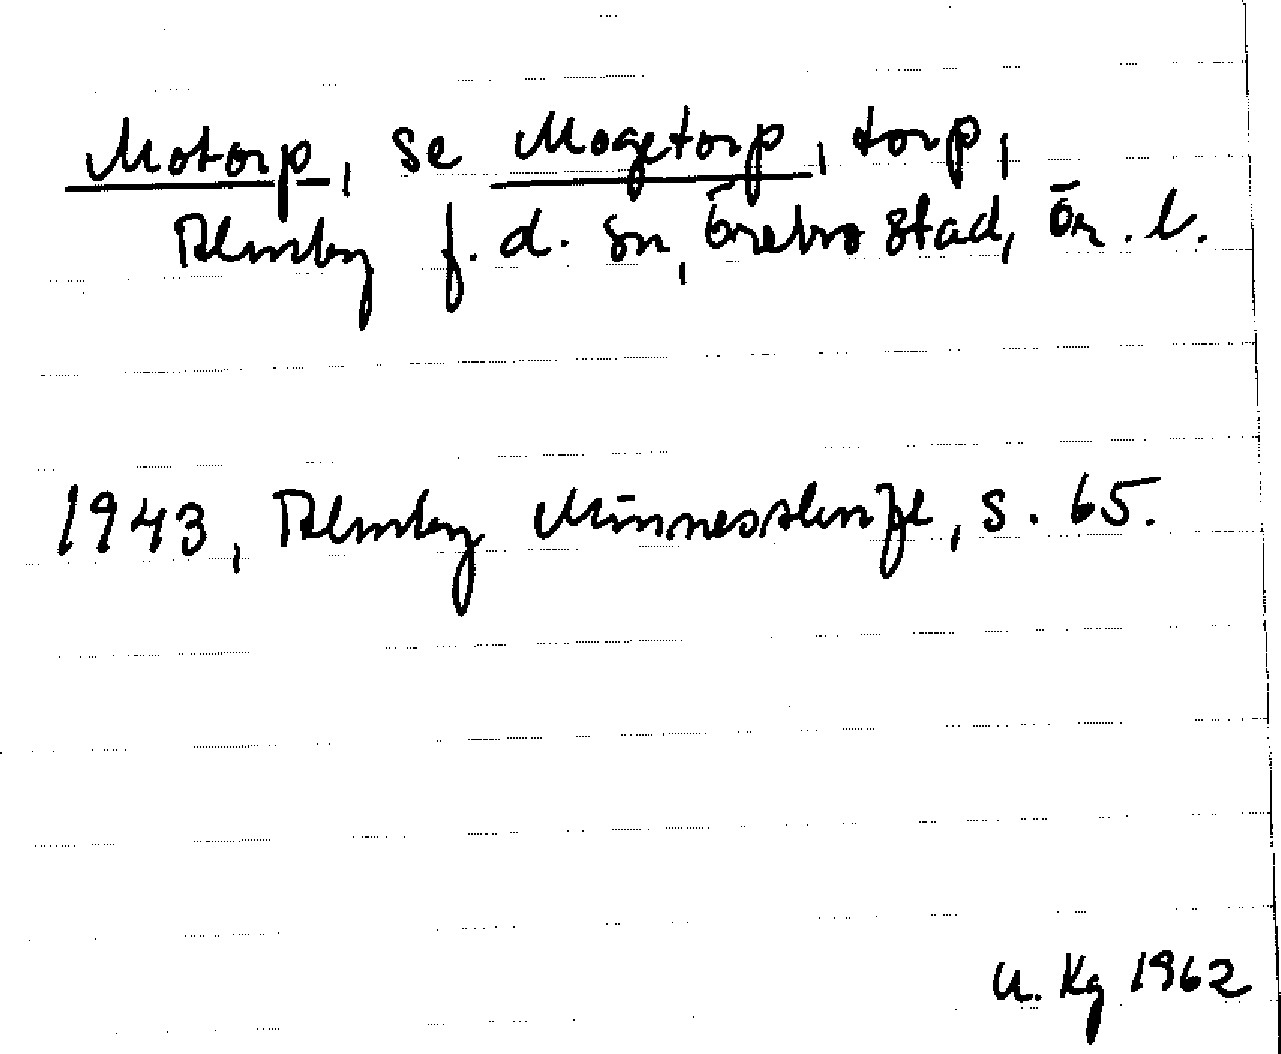 Motorp, se Mogetorp, torp,
Almby f.d. sn, Örebro stad, Ör. l.
1943, Almby Minnesslinje, s. 65.
U. Kg 1962